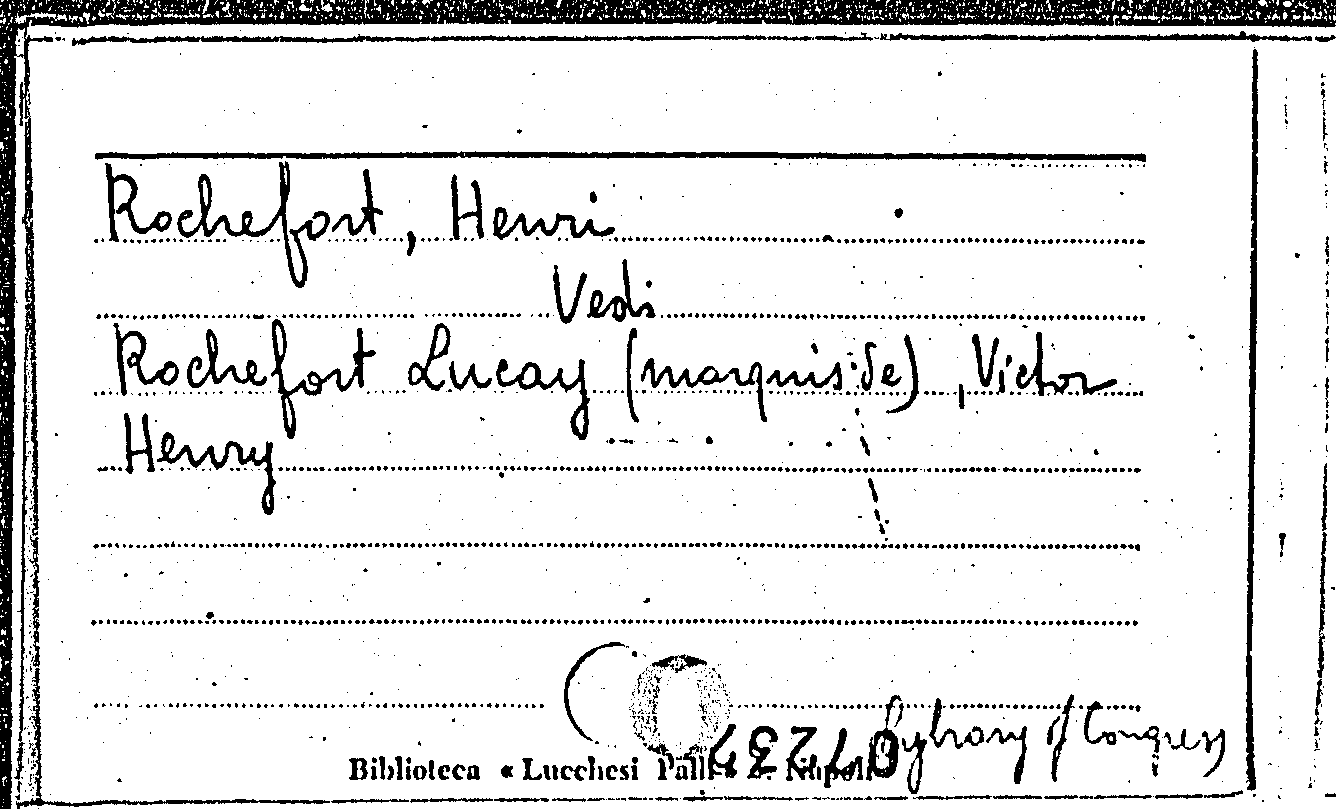 Rochefort, Henri
Vedi
Rochefort Lucay (marquis de), Victor
Henry
Lybrary of Congress
Biblioteca « Lucchesi Palli